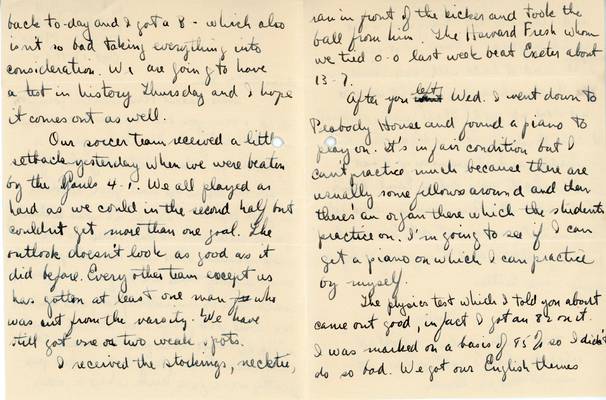 back to-day and I got a 8 - which also
isn't so bad taking everything into
consideration. We are going to have
a test in history Thursday and I hope
it comes out as well.
Our soccer team received a little
setback yesterday when we were beaten
by the Gauls 4-1. We all played as
hard as we could in the second half but
couldn't get more than one goal. The
outlook doesn't look as good as it
did before. Every other team except us
has gotten at least one man who
was cut from the varsity. We have
still got one or two weak spots.
I received the stockings, necktie,
ran in front of the kicker and took the
ball from him. The Harvard Fresh whom
we tied 0-0 last week beat Exeter about
13-7.
After you left Wed. I went down to
Peabody House and found a piano to
play on. It's in fair condition but I
can't practice much because there are
usually some fellows around and then
there's an organ there which the students
practice on. I'm going to see if I can
get a piano on which I can practice
by myself.
The physics test which I told you about
came out good, in fact I got an 82 on it.
I was marked on a basis of 95% so I didn't
do so bad. We got our English themes